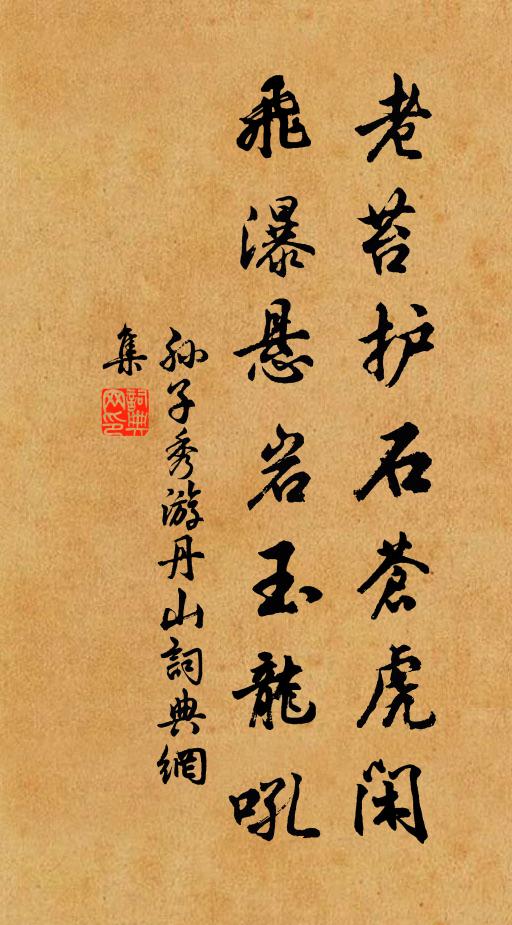 老苔护石苍虎闲
飞瀑悬岩玉龍吼
孙子秀游丹山詞典網
集
詞典網印